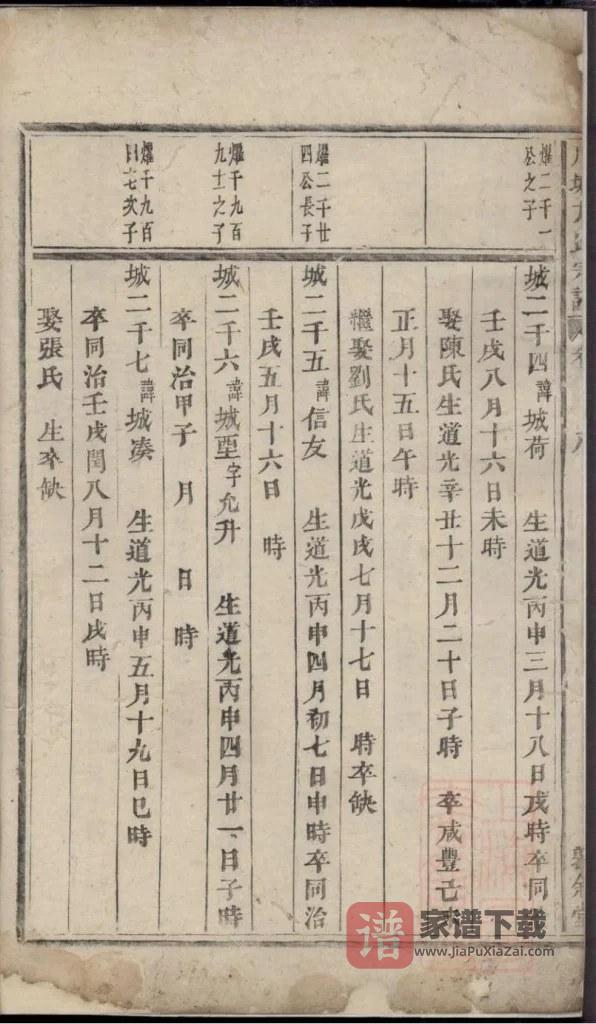 燿二千一
公之子
城二千四 諱城荷 生道光丙申三月十八日戌時卒同
壬戌八月十六日未時
娶陳氏生道光辛丑十二月二十日子時 卒咸豐己
正月十五日午時
繼娶劉氏生道光戊戌七月十七日 時卒缺
燿二千廿
四公長子
城二千五 諱信友 生道光丙申四月初七日申時卒同治
壬戌五月十六日 時
燿千九百
九十之子
城二千六 諱城 字允升 生道光丙申四月廿一日子時
卒同治甲子 月 日 時
燿千九百
七次子
城二千七 諱城凑 生道光丙申五月十九日巳時
卒同治壬戌閏八月十二日戌時
娶張氏 生卒缺
谱 家谱下载
www.JiaPuXiaZai.com